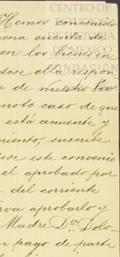 CENTRO DE
Hemos convenido
buena cuenta de
en los bienes in
dose ella respon
de nuestro
noto caso de que
está anuente y
miento, suscribe
que este convenio
el aprobado por
del corriente
rva aprobarlo y
Madre Da. Dolo-
pago de parte